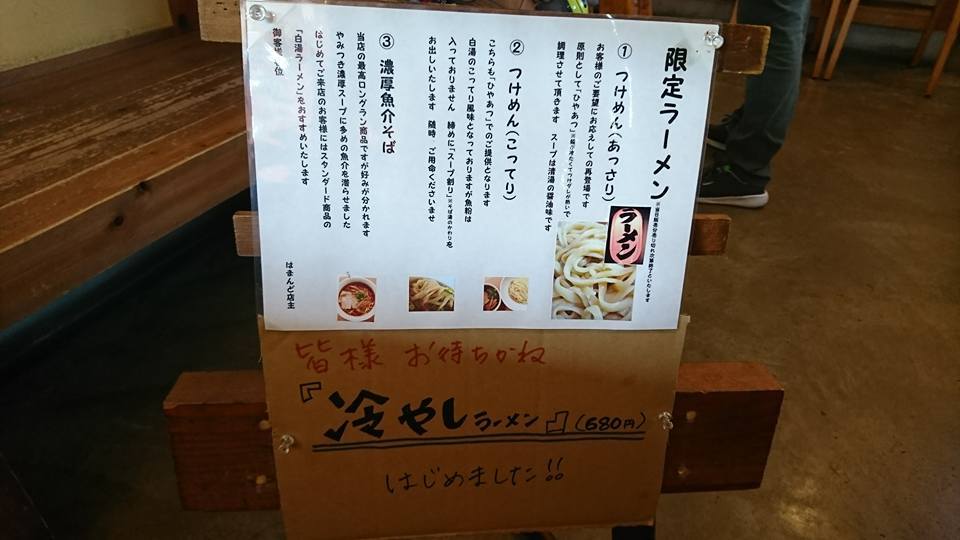 限定ラーメン
ラーメン
① つけめん(あっさり)
お客様のご要望にお応えしての再登場です
原則として「ひやあつ」
調理させて頂きます スープは清湯の醤油味です
② つけめん(こってり)
こちらも「ひやあつ」でのご提供となります
白湯のこってり風味となっておりますが魚粉は
入っておりません 締めに「スープ割り」※そば湯のかわりを
お出しいたします 随時、ご用命くださいませ
③ 濃厚魚介そば
当店の最高ロングラン商品ですが好みが分かれます
やみつき濃厚スープに多めの魚介を潜らせました
はじめてご来店のお客様にはスタンダード商品の
「白湯ラーメン」をおすすめいたします
御客様各位
はまんど店主
皆様 お待ちかね
『冷やしラーメン』(680円)
はじめました!!